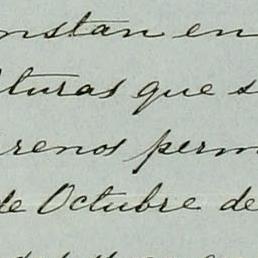 nstan en
turas que s
renos perm
de Octubre de